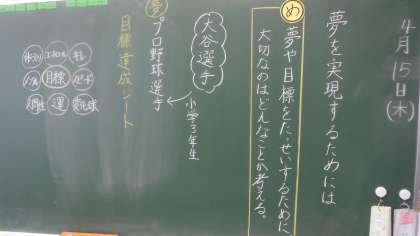 4月15日(木)
夢を実現するためには
め
夢や目標をたっせいするために
大切なのはどんなことか考える。
大谷選手
小学3年生
夢
プロ野球選手
目標達成シート
体づくり
コントロール
キレ
メンタル
目標
スピード
人間性
運
変化球